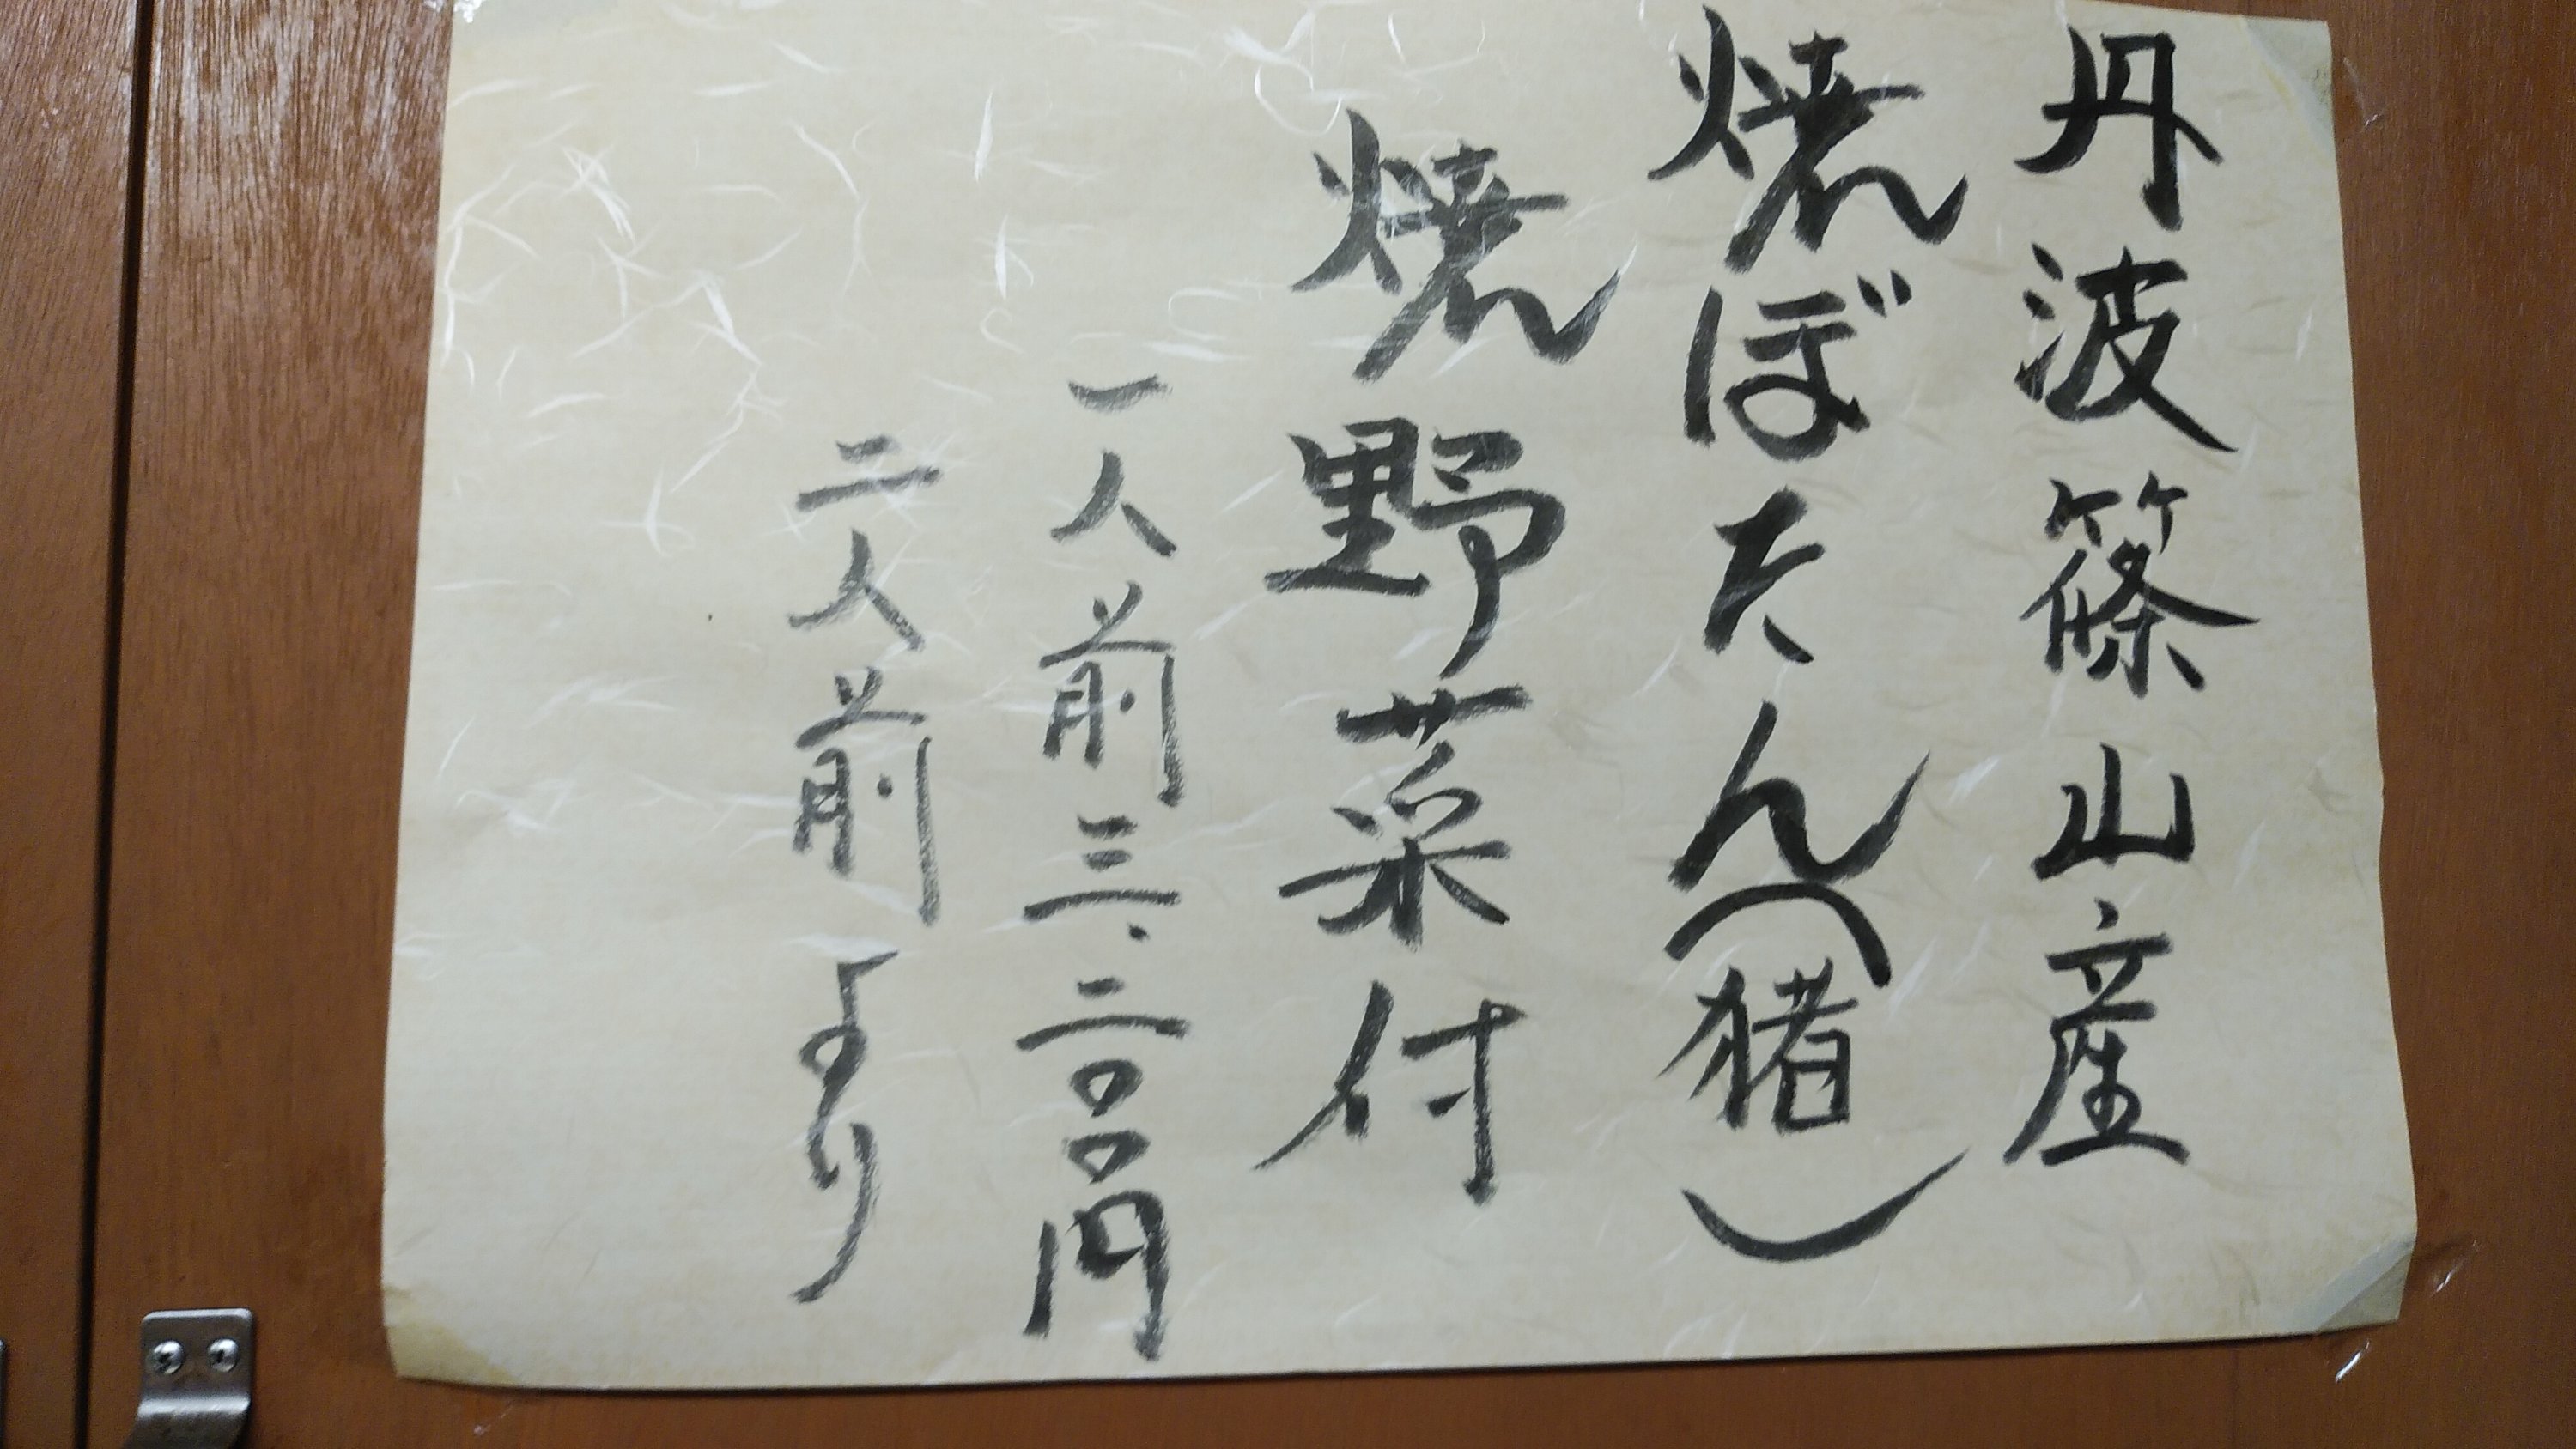 丹波篠山産
焼ぼたん(猪)
焼野菜付
一人前三.二〇〇円
二人前より